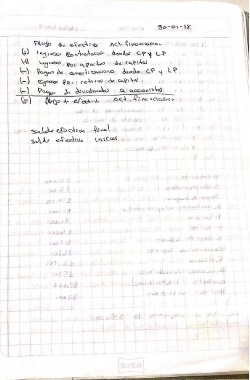 30-01-18
Flujo de efectivo Act. financiación
(+) Ingresos contratación deuda CP y LP
(+) Ingresos por aportes de capital
(-) Pagos de amortizaciones deuda CP y LP
(-) Egresos por retiro de capital
(-) Pago de dividendos a accionistas
(=) flujo de efectivo Act. financiación
saldo efectivo final
saldo efectivo inicial